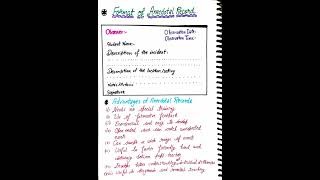 Format of Anecdotal Record
Observer:-
Observation Date:
Observation Time:
Student Name:-
Description of the incident:-
Description of the location/setting
Notes/Actions:
Signature
Advantages of Anecdotal Records
i) Needs no special training
ii) Use of formative feedback
iii) Economical and easy to
iv) Open ended and can catch unexpected events
v) Can sample a wide range of events
vi) Useful to foster friendly bond and
between
vii)
viii) Useful to diagnosis and remedial teaching